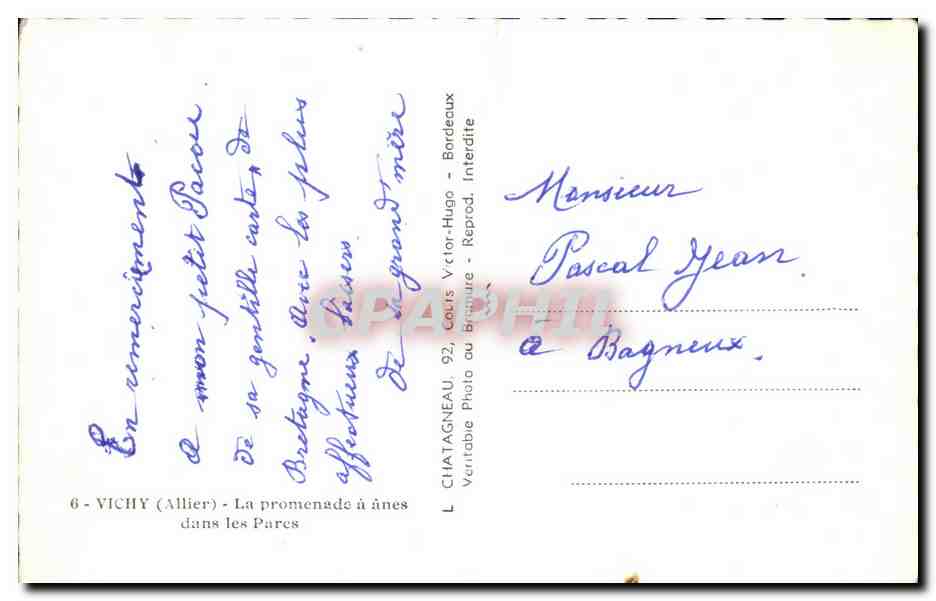 En remerciements
a mon petit Pacou
de sa gentille carte, de
Bretagne. Avec les plus
affectueux baisers
de ta grand mère
6 - VICHY (Allier) - La promenade à ânes
dans les Parcs
L CHATAGNEAU, 92, Cours Victor-Hugo - Bordeaux
Veritable Photo au Bromure - Reprod. Interdite
Monsieur
Pascal Jean
a Bagneux.
CPAPHIL